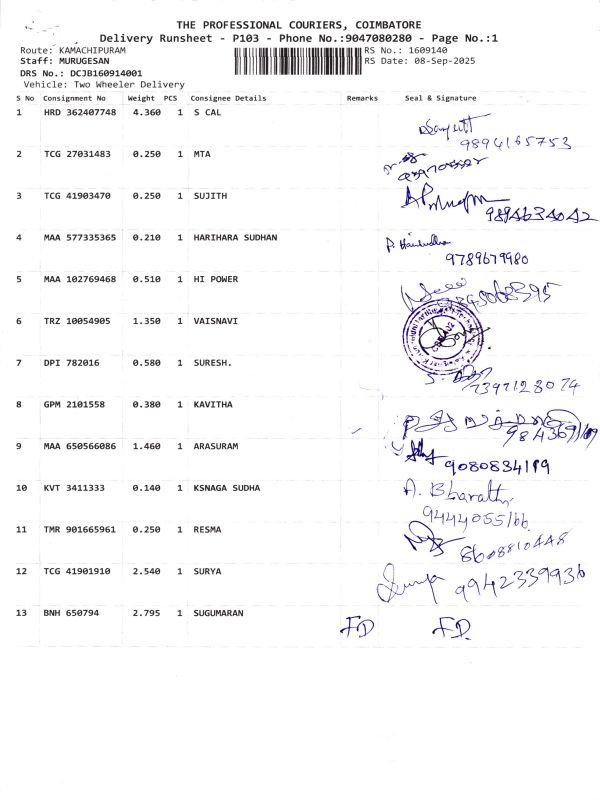 THE PROFESSIONAL COURIERS, COIMBATORE
Delivery Runsheet - P103 - Phone No.:9047080280 - Page No.:1
Route: KAMACHIPURAM RS No.: 1609140
Staff: MURUGESAN RS Date: 08-Sep-2025
DRS No.: DCJB160914001
Vehicle: Two Wheeler Delivery
S No Consignment No Weight PCS Consignee Details Remarks Seal & Signature
1 HRD 362407748 4.360 1 S CAL
9894165753
2 TCG 27031483 0.250 1 MTA
3 TCG 41903470 0.250 1 SUJITH
9894634042
4 MAA 577335365 0.210 1 HARIHARA SUDHAN
9789679980
5 MAA 102769468 0.510 1 HI POWER
6 TRZ 10054905 1.350 1 VAISNAVI
7 DPI 782016 0.580 1 SURESH.
7397128074
8 GPM 2101558 0.380 1 KAVITHA
9 MAA 650566086 1.460 1 ARASURAM
9080834119
10 KVT 3411333 0.140 1 KSNAGA SUDHA A. Bharathi
9444055166
11 TMR 901665961 0.250 1 RESMA
8608810448
12 TCG 41901910 2.540 1 SURYA Surya 9942339936
13 BNH 650794 2.795 1 SUGUMARAN FD FD